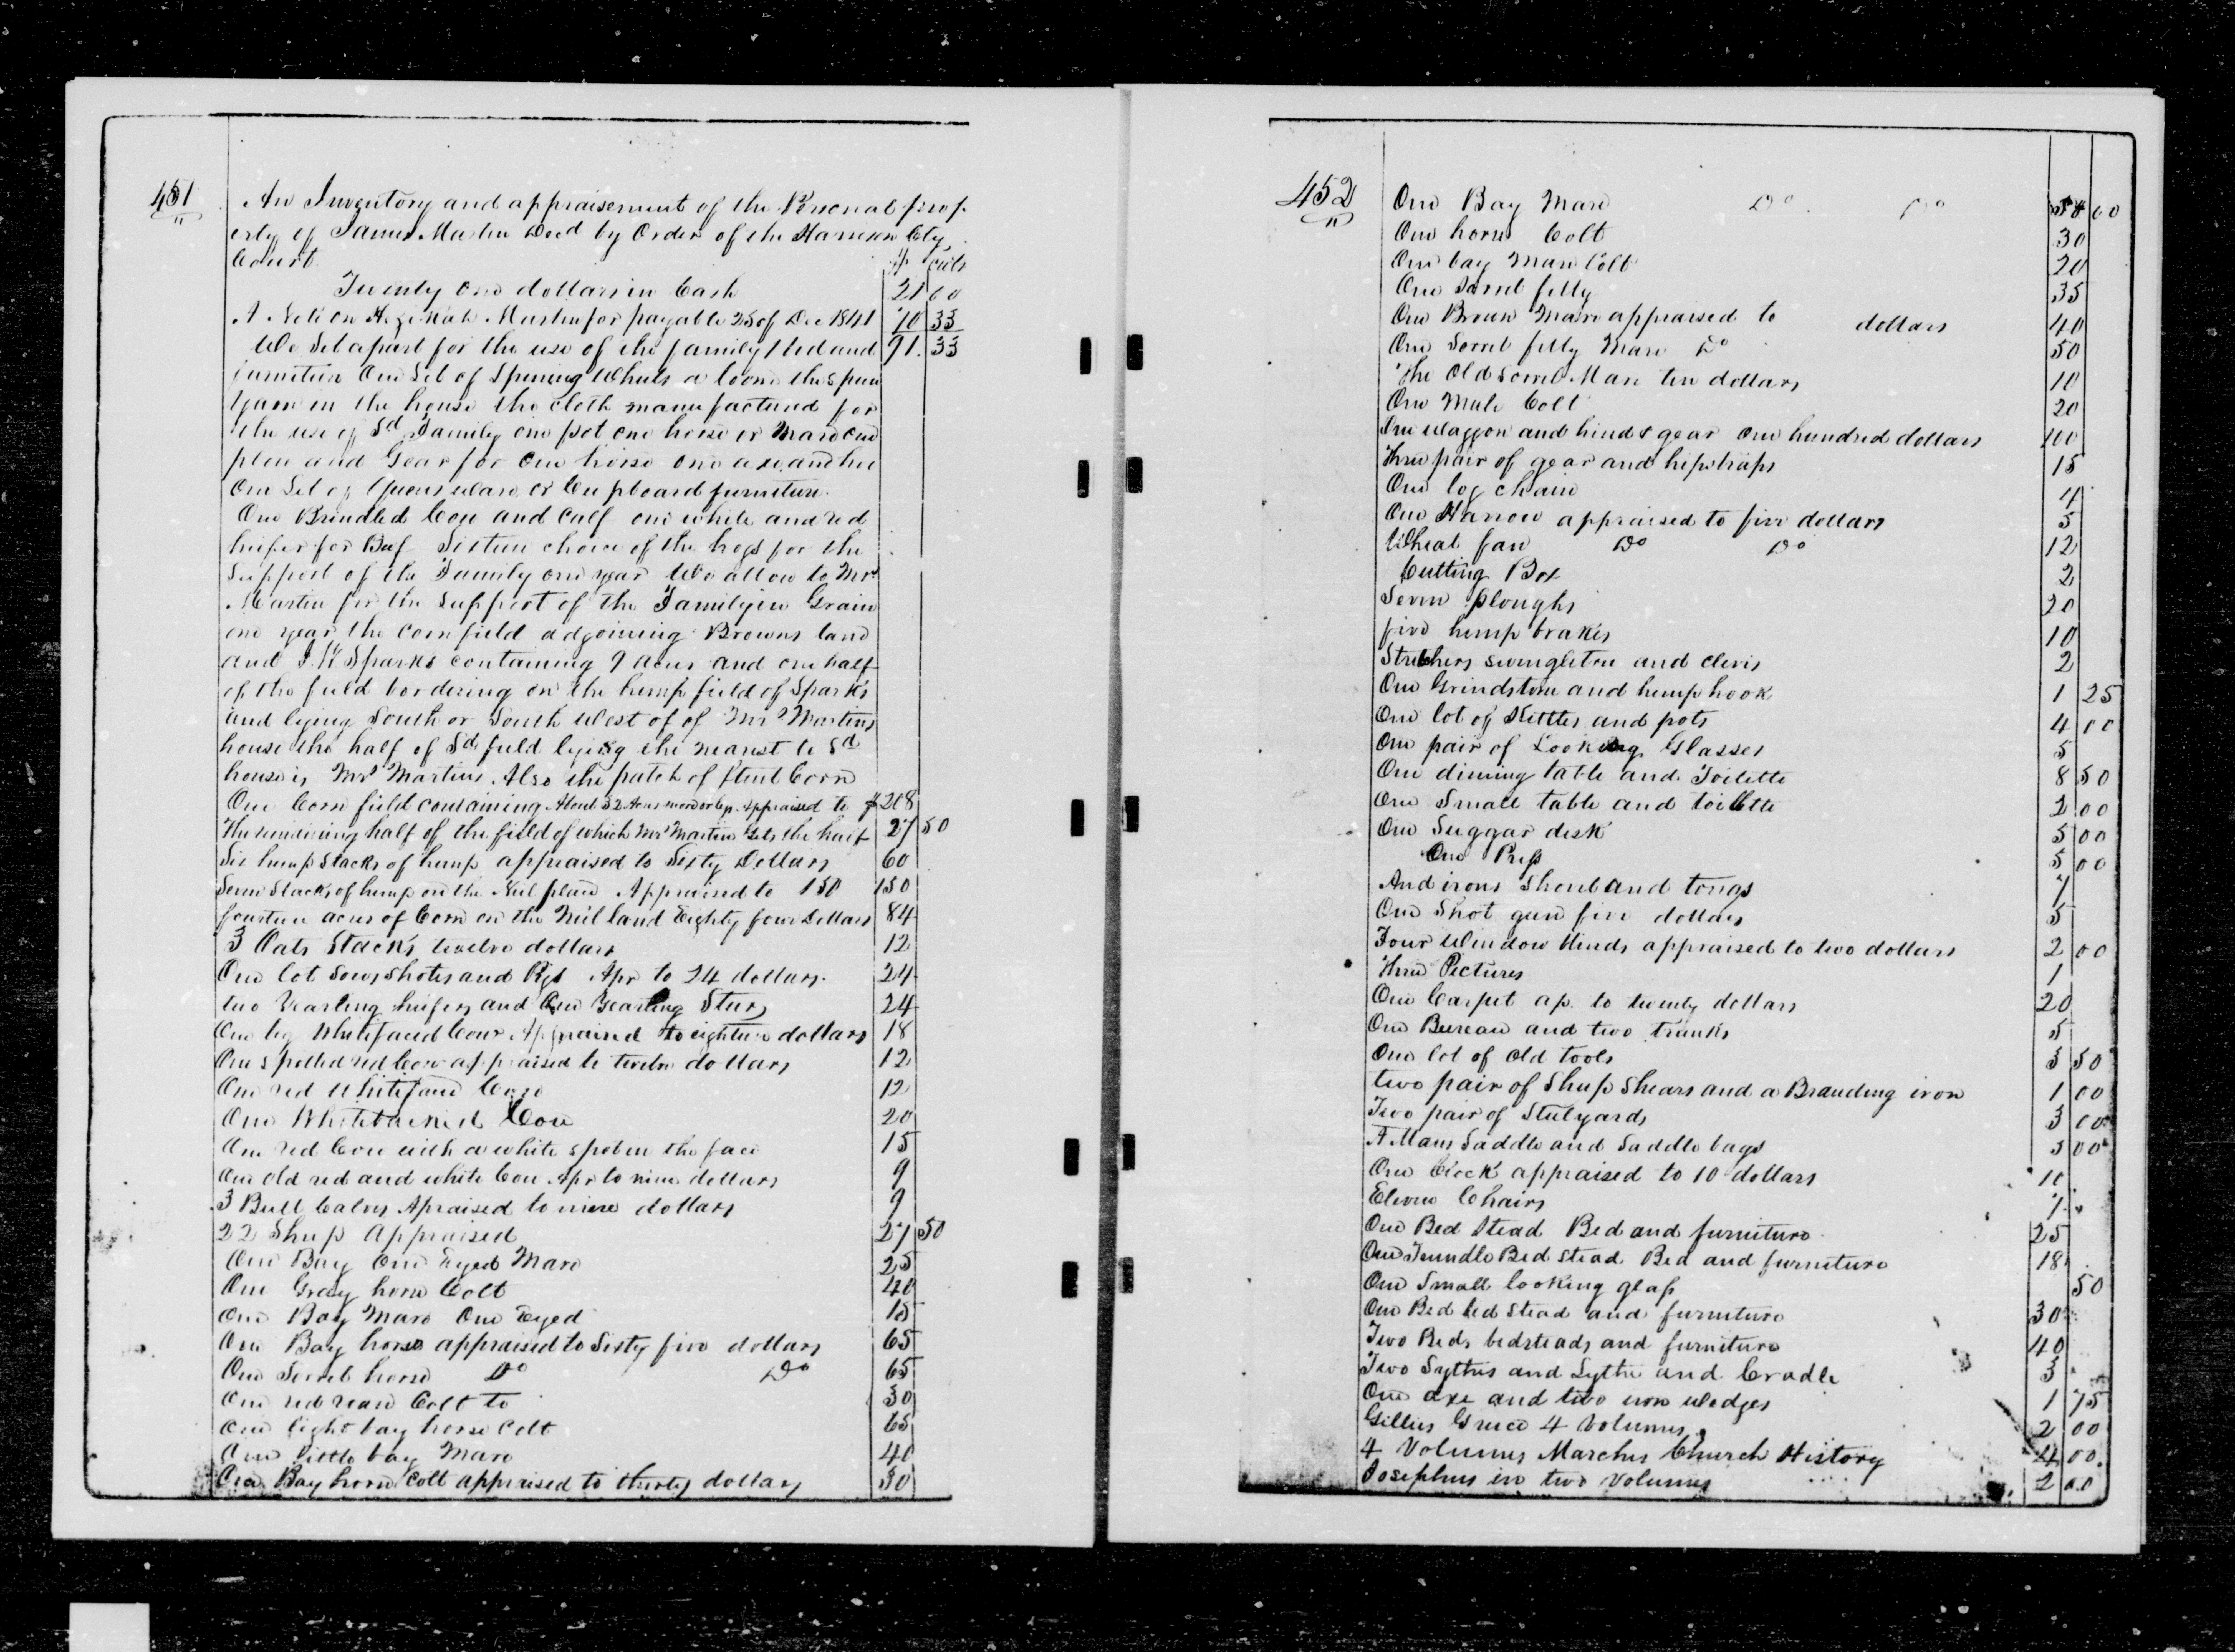 451
An Inventory and appraisement of the Personal prop
erty of James Martin Decd by Order of the Harrison Cty
Court $ cents
Twenty One dollars in Cash 21 00
A Note on Hezekiah Martin for payable 25 of Dec 1841 70 33
We Set apart for the use of the family 1 bed and 91. 33
furniture One Set of Spinning Wheels a loom the Spun
Yarn in the house the cloth manufactured for
the use of Sd Family one pot one horse or Mare one
plow and Gear for One horse one axe and hoe
One Set of Queensware or Cupboard furniture.
One Brindled Cow and Calf one white and red
heifer for Beef Sixteen choice of the hogs for the
Support of the Family one year We allow to Mrs
Martin for the Support of the Family in Grain
one year the Cornfield adjoining Browns land
and J. K Sparks containing 9 acres and one half
of the field bordering on the hemp field of Sparks
and lying South or South West of of Mrs Martins
house the half of Sd field lying the nearest to Sd
house is Mrs Martins. Also the patch of flint Corn
One Corn field containing About 32 Acres more or less. Appraised to $208
The remaining half of the field of which Mrs Martin Gets the half 27 50
Six hemp Stacks of hemp appraised to Sixty Dollars 60
Seven Stacks of hemp on the Neil place Appraised to 150 150
fourteen acres of Corn on the Neil land Eighty four Dollars 84
3 Oats Stacks twelve dollars 12
One lot Sows Shotes and Pigs Apr to 24 dollars. 24
two Yearling heifers and One Yearling Steer 24
One big Whitefaced Cow Appraised to eighteen dollars 18
One spotted red Cow appraised to twelve dollars 12
One red Whiteface Cow 12
One Whitebacked Cow 20
One red Cow with a white spot in the face 15
One old red and white Cow Apr to nine dollars 9
3 Bull Calves Apraised to nine dollars 9
22 Sheep Appraised 27 50
One Bay One Eyed Mare 25
One Gray horse Colt 40
One Bay Mare One Eyed 15
One Bay horse appraised to Sixty five dollars 65
One Sorrel horse Do Do 65
One red roan Colt to 30
One light bay horse Colt 65
One little bay Mare 40
One Bay horse Colt appraised to thirty dollars 30
452
One Bay Mare Do Do 00
One horse Colt 30
One bay Mare Colt 20
One Sorrel filly 35
One Brown Mare appraised to dollars 40
One Sorrel filly Mare Do 50
The Old Sorrel Mare ten dollars 10
One Mule Colt 20
One Waggon and hind & gear One hundred dollars 100
Three pair of gear and hipstraps 15
One log chain 4
One Harrow appraised to five dollars 5
Wheat fan Do Do 12
Cutting Box 2
Seven ploughs 20
five hemp brakes 10
Stretchers swingletree and clevis 2
One Grindstone and hemp hook 1 25
One lot of Kettles and pots 4 00
One pair of Looking Glasses 5
One dining table and Toilette 8 50
One Small table and toilette 2 00
One Suggar desk 5 00
One Press 5 00
Andirons Shovel and tongs 7
One Shot gun five dollars 5
Four Window blinds appraised to two dollars 2 00
Three Pictures 1
One Carpet ap. to twenty dollars 20
One Bureau and two trunks 5
One lot of old tools 3 50
two pair of Sheep Shears and a Branding iron 1 00
Two pair of Steelyards 3 00
A Mans Saddle and Saddle bags 3 00
One Clock appraised to 10 dollars 10
Eleven Chairs 7
One Bed Stead Bed and furniture 25
One Trundle Bed stead Bed and furniture 18
One Small looking glass 50
One Bed bed stead and furniture 30
Two Beds bedsteads and furniture 40
Two Sythes and Sythe and Cradle 3
One axe and two iron wedges 1 75
Gillies Greece 4 Volumes 2 00
4 Volumes Marches Church History 4 00
Josephus in two Volumes 2 00